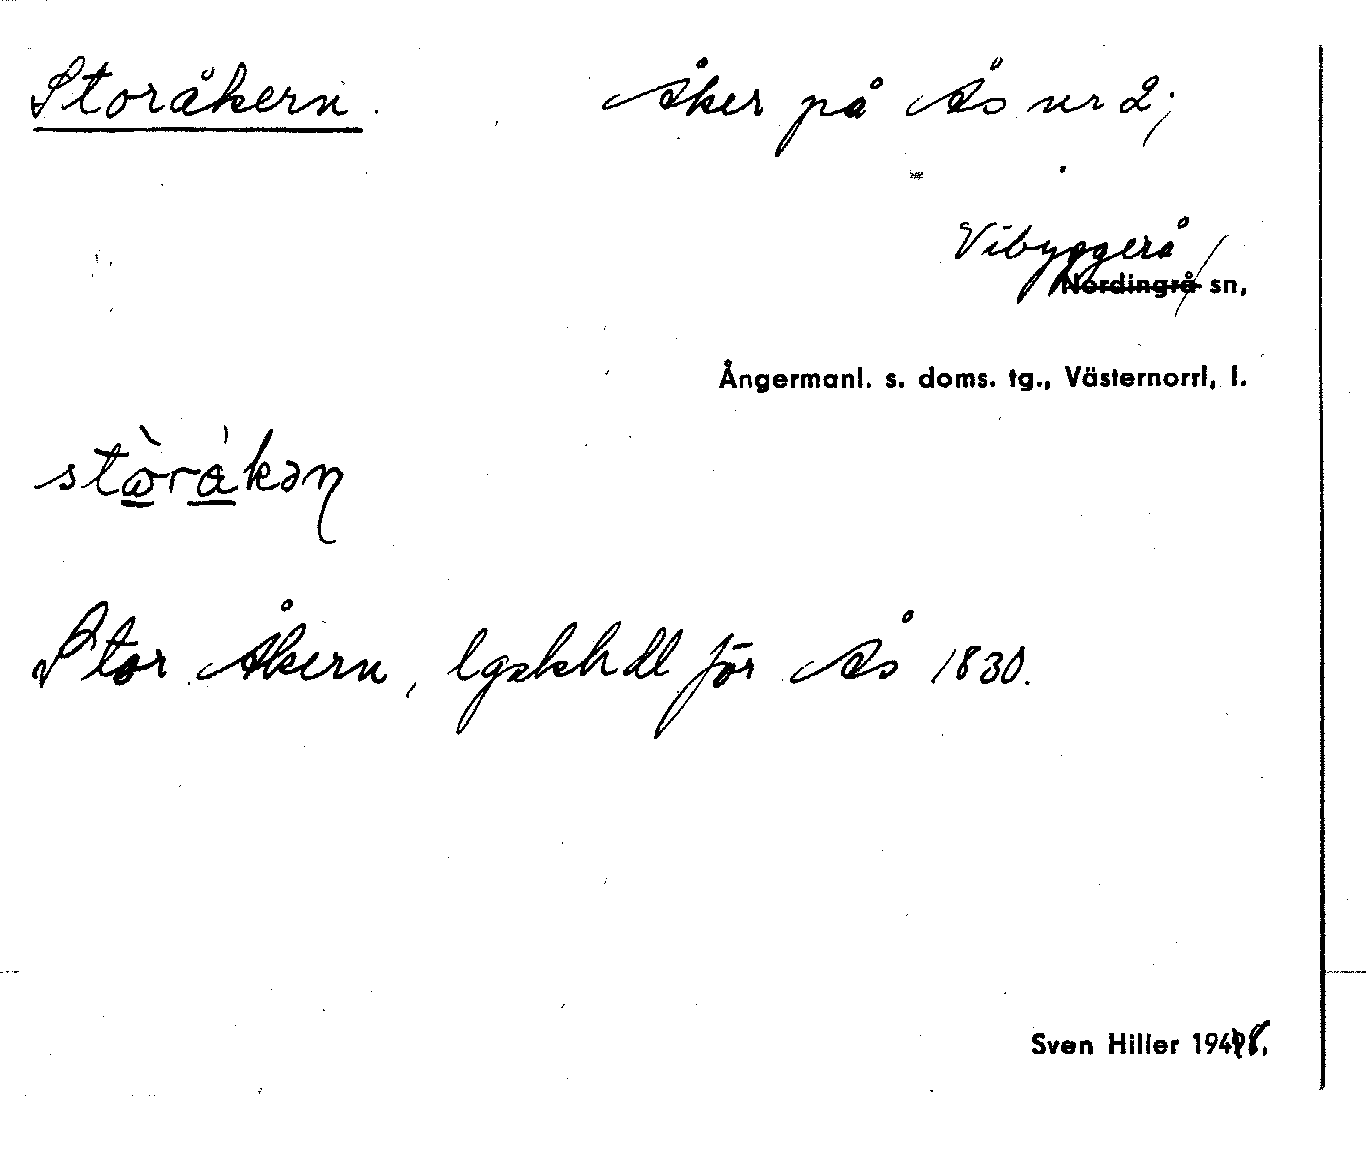 Storåkern. Åker på Ås nr 2;
Vibyggerå
Nordingrå sn,
Ångermanl. s. doms. tg., Västernorrl. l.
stòrákən
Stor Åkern, lgskhdl för Ås 1830.
Sven Hiller 1948.